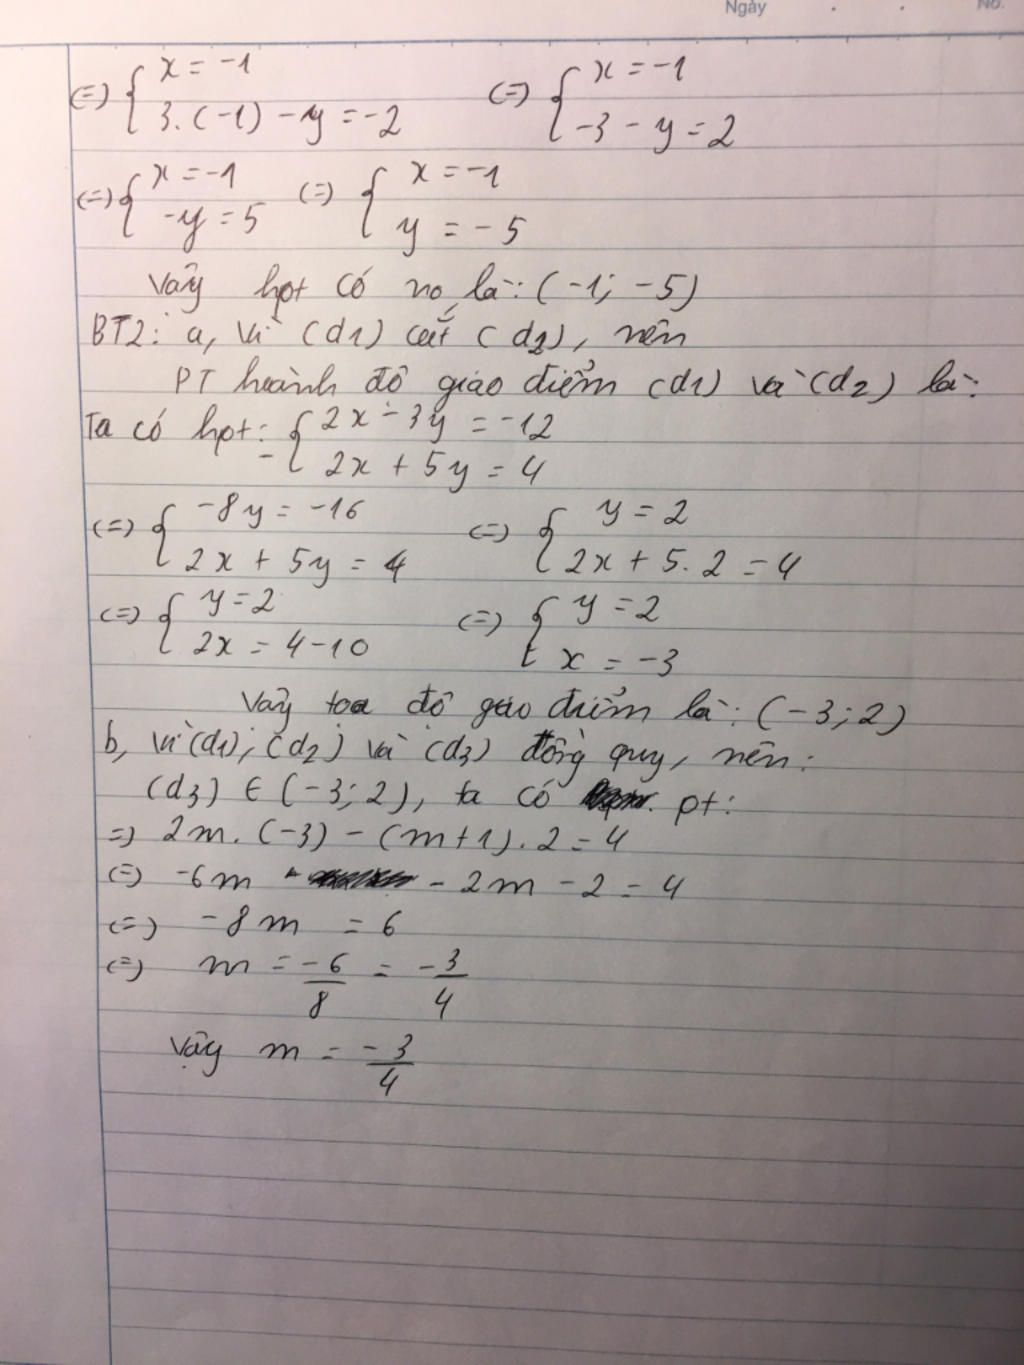 Ngày . . No.
(=) { x = -1 (=) { x = -1
3.(-1) - y = -2 -3 - y = 2
(=) { x = -1 (=) { x = -1
-y = 5 y = -5
Vậy hpt có no là: (-1; -5)
BT2: a, Vì (d1) cắt (d2), nên
PT hoành độ giao điểm (d1) và (d2) là:
Ta có hpt: - { 2x - 3y = -12
2x + 5y = 4
(=) { -8y = -16 (=) { y = 2
2x + 5y = 4 2x + 5.2 = 4
(=) { y = 2 (=) { y = 2
2x = 4-10 x = -3
Vậy toạ độ giao điểm là: (-3; 2)
b, Vì (d1); (d2) và (d3) đồng quy, nên:
(d3) ∈ (-3; 2), ta có pt:
=) 2m.(-3) - (m+1).2 = 4
(=) -6m - 2m - 2 = 4
(=) -8m = 6
(=) m = -6/8 = -3/4
Vậy m = -3/4